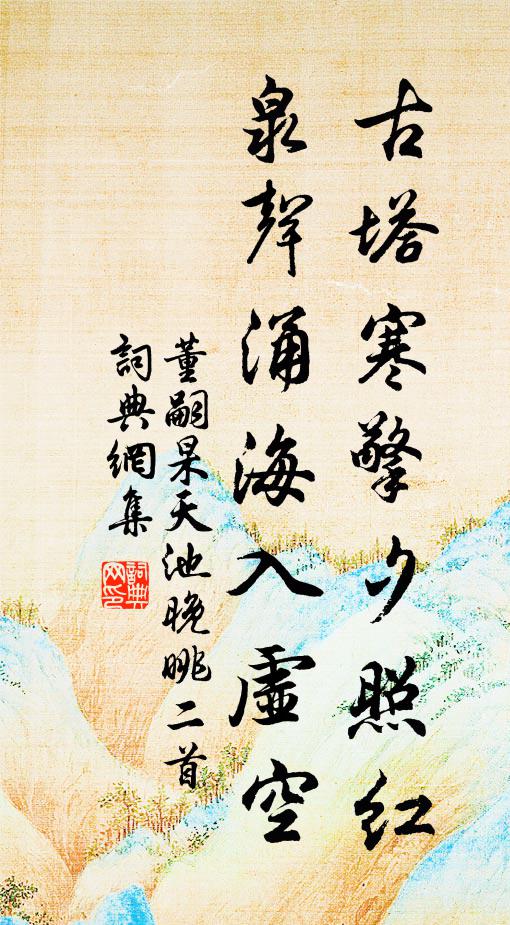 古塔寒擎夕照紅
泉聲涌海入虛空
董嗣杲天池晚眺二首
詞典網集
詞典
网印